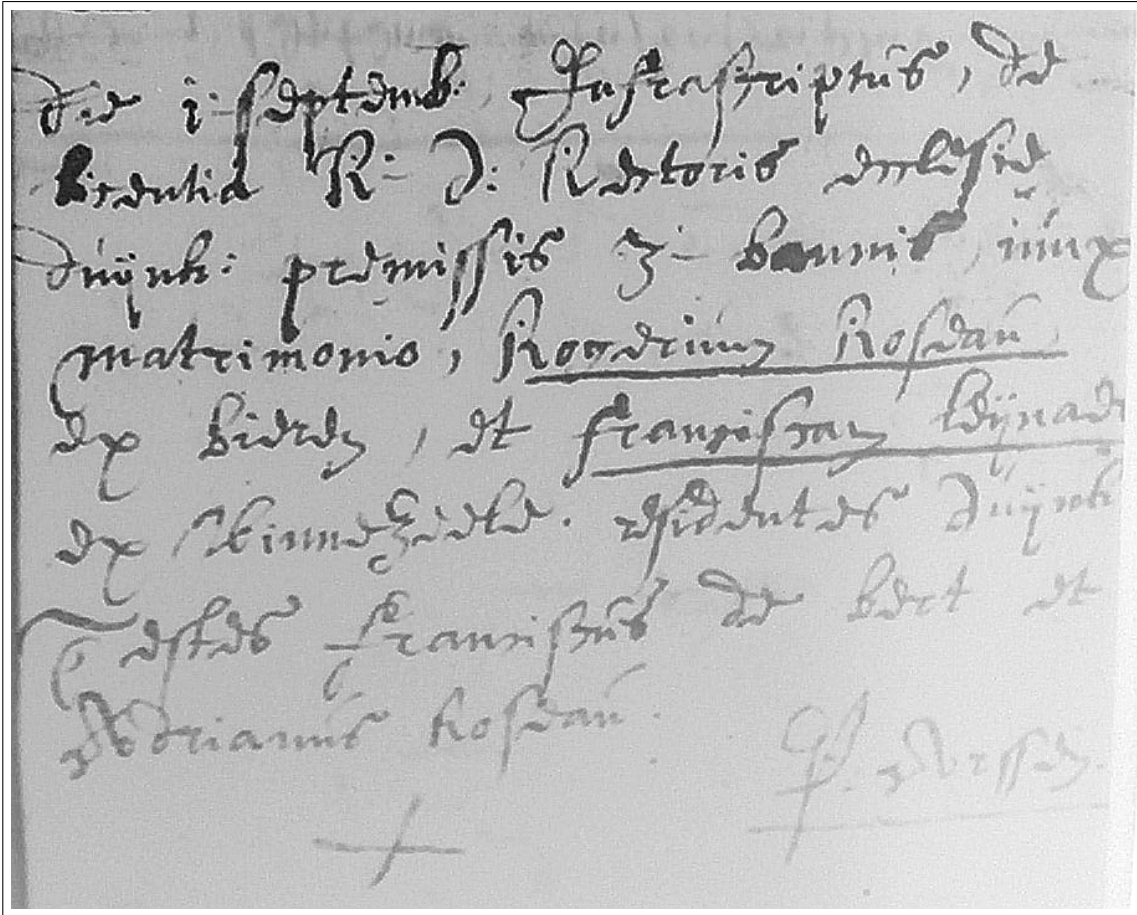 die i septemb: Infrascriptus, de
licentia R: D: Rectoris ecclesie
duÿnk: premissis 3 bannis iunx
matrimonio, Rogerium Rosdau
ex bieren, et franciscam
ex binnezeele. residentes Duÿnk
Testes franciscus de bert et
Adrianus Rosdau.
P.